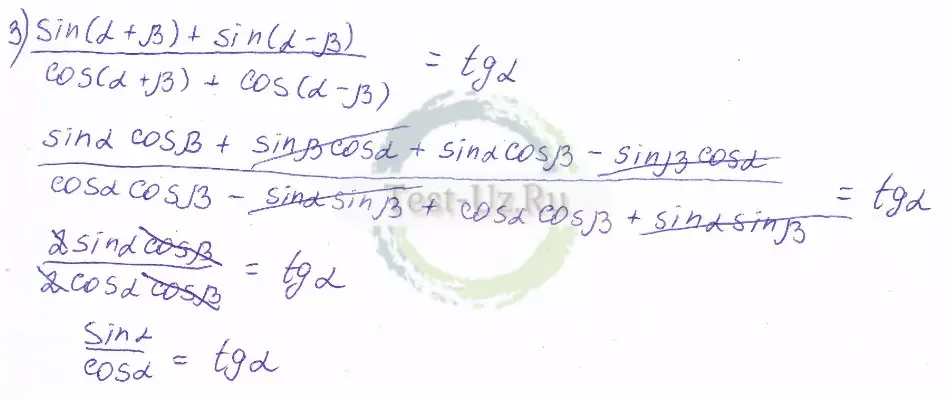 3) sin(α+β) + sin(α-β)
cos(α+β) + cos(α-β) = tgα
sinα cosβ + sinβ cosα + sinα cosβ - sinβ cosα
cosα cosβ - sinα sinβ + cosα cosβ + sinα sinβ = tgα
Test-Uz.Ru
2 sinα cosβ
2 cosα cosβ = tgα
sinα
cosα = tgα